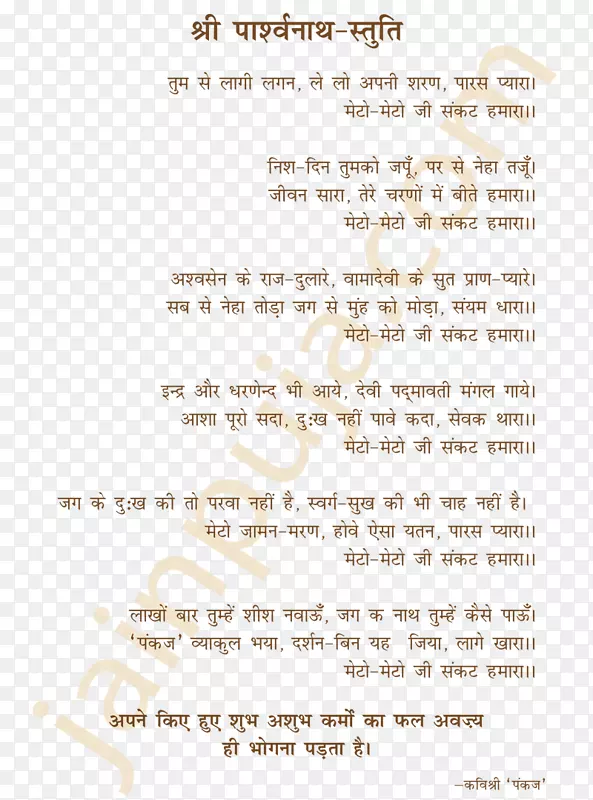 श्री पार्श्वनाथ-स्तुति
तुम से लागी लगन, ले लो अपनी शरण, पारस प्यारा।
मेटो-मेटो जी संकट हमारा।।
निश-दिन तुमको जपूँ, पर से नेहा तजूँ।
जीवन सारा, तेरे चरणों में बीते हमारा।।
मेटो-मेटो जी संकट हमारा।।
अश्वसेन के राज-दुलारे, वामादेवी के सुत प्राण-प्यारे।
सब से नेहा तोड़ा जग से मुंह को मोड़ा, संयम धारा।।
मेटो-मेटो जी संकट हमारा।।
इन्द्र और धरणेन्द भी आये, देवी पद्मावती मंगल गाये।
आशा पूरो सदा, दुःख नहीं पावे कदा, सेवक थारा।।
मेटो-मेटो जी संकट हमारा।।
जग के दुःख की तो परवा नहीं है, स्वर्ग-सुख की भी चाह नहीं है।
मेटो जामन-मरण, होवे ऐसा यतन, पारस प्यारा।।
मेटो-मेटो जी संकट हमारा।।
लाखों बार तुम्हें शीश नवाऊँ, जग क नाथ तुम्हें कैसे पाऊँ।
‘पंकज’ व्याकुल भया, दर्शन-बिन यह जिया, लागे खारा।।
मेटो-मेटो जी संकट हमारा।।
अपने किए हुए शुभ अशुभ कर्मो का फल अवज़्य
ही भोगना पड़ता है।
–कविश्री ‘पंकज’
jainpuja.com